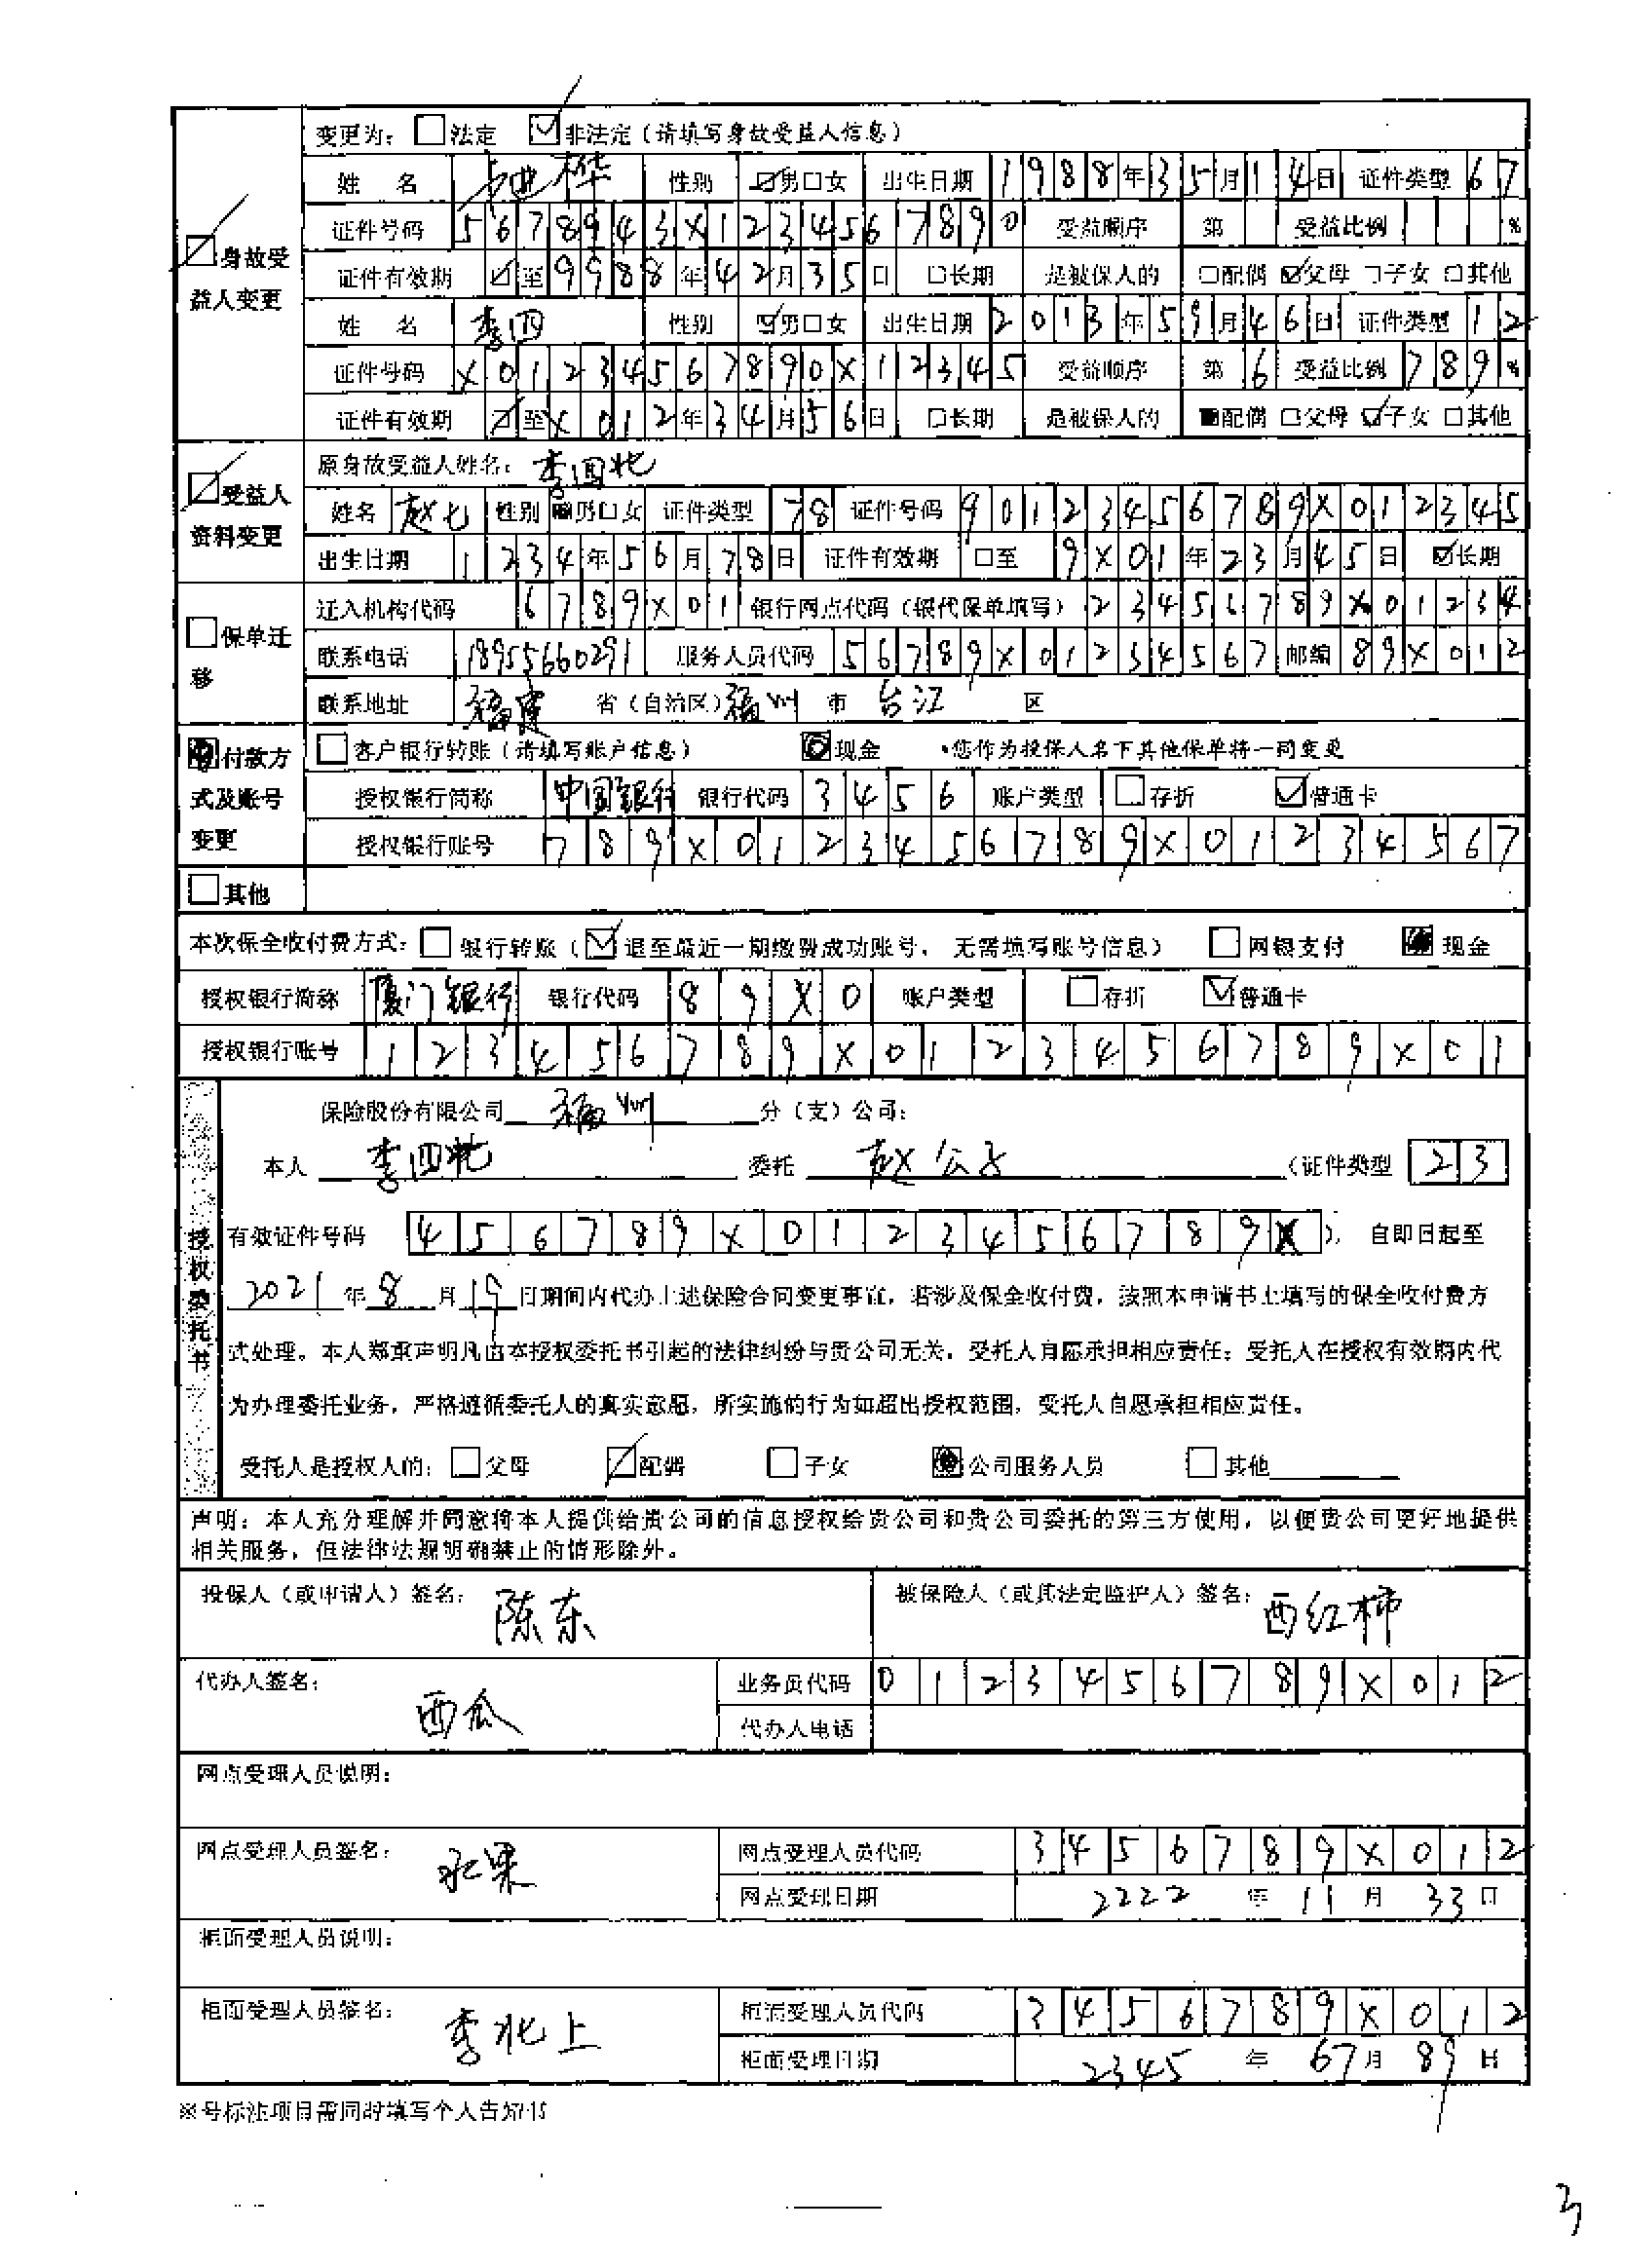 变更为：□法定 ☑非法定（请填写身故受益人信息）
☑身故受益人变更
姓 名 性别 ☑男□女 出生日期 1988年35月14日 证件类型 67
证件号码 5678943X1234567890 受益顺序 第 受益比例 %
证件有效期 ☑至9988年42月35日 □长期 是被保人的 □配偶 ☑父母 □子女 □其他
姓 名 李四 性别 ☑男□女 出生日期 2013年59月46日 证件类型 12
证件号码 X01234567890X12345 受益顺序 第6 受益比例 789%
证件有效期 ☑至X012年34月56日 □长期 是被保人的 ■配偶 □父母 ☑子女 □其他
☑受益人资料变更
原身故受益人姓名：李四北
姓名 赵七 性别 ■男□女 证件类型 78 证件号码 90123456789X012345
出生日期 1234年56月78日 证件有效期 □至 9X01年23月45日 ☑长期
□保单迁移
迁入机构代码 6789X01 银行网点代码（银代保单填写）23456789X01234
联系电话 18955660291 服务人员代码 56789X01234567 邮编 89X012
联系地址 福建 省（自治区）福州 市 台江 区
■付款方式及账号变更
□客户银行转账（请填写账户信息） ■现金 •您作为投保人名下其他保单将一同变更
授权银行简称 中国银行 银行代码 3456 账户类型 □存折 ☑普通卡
授权银行账号 789X0123456789X01234567
□其他
本次保全收付费方式：□银行转账（☑退至最近一期缴费成功账号，无需填写账号信息） □网银支付 ■现金
授权银行简称 厦门银行 银行代码 89X0 账户类型 □存折 ☑普通卡
授权银行账号 123456789X0123456789X01
授权委托书
保险股份有限公司 福州 分（支）公司：
本人 李四北 委托 赵公子 （证件类型 23
有效证件号码 456789X0123456789X ），自即日起至
2021年8月19日期间内代办上述保险合同变更事宜，若涉及保全收付费，按照本申请书上填写的保全收付费方
式处理。本人郑重声明凡由本授权委托书引起的法律纠纷与贵公司无关，受托人自愿承担相应责任；受托人在授权有效期内代
为办理委托业务，严格遵循委托人的真实意愿，所实施的行为如超出授权范围，受托人自愿承担相应责任。
受托人是授权人的：□父母 ☑配偶 □子女 ■公司服务人员 □其他
声明：本人充分理解并同意将本人提供给贵公司的信息授权给贵公司和贵公司委托的第三方使用，以便贵公司更好地提供
相关服务，但法律法规明确禁止的情形除外。
投保人（或申请人）签名：陈东 被保险人（或其法定监护人）签名：西红柿
代办人签名：西瓜 业务员代码 0123456789X012
代办人电话
网点受理人员说明：
网点受理人员签名：水果 网点受理人员代码 3456789X012
网点受理日期 2222 年 11 月 33 日
柜面受理人员说明：
柜面受理人员签名：李北上 柜面受理人员代码 3456789X012
柜面受理日期 2345 年 67月 89 日
※号标注项目需同时填写个人告知书
3